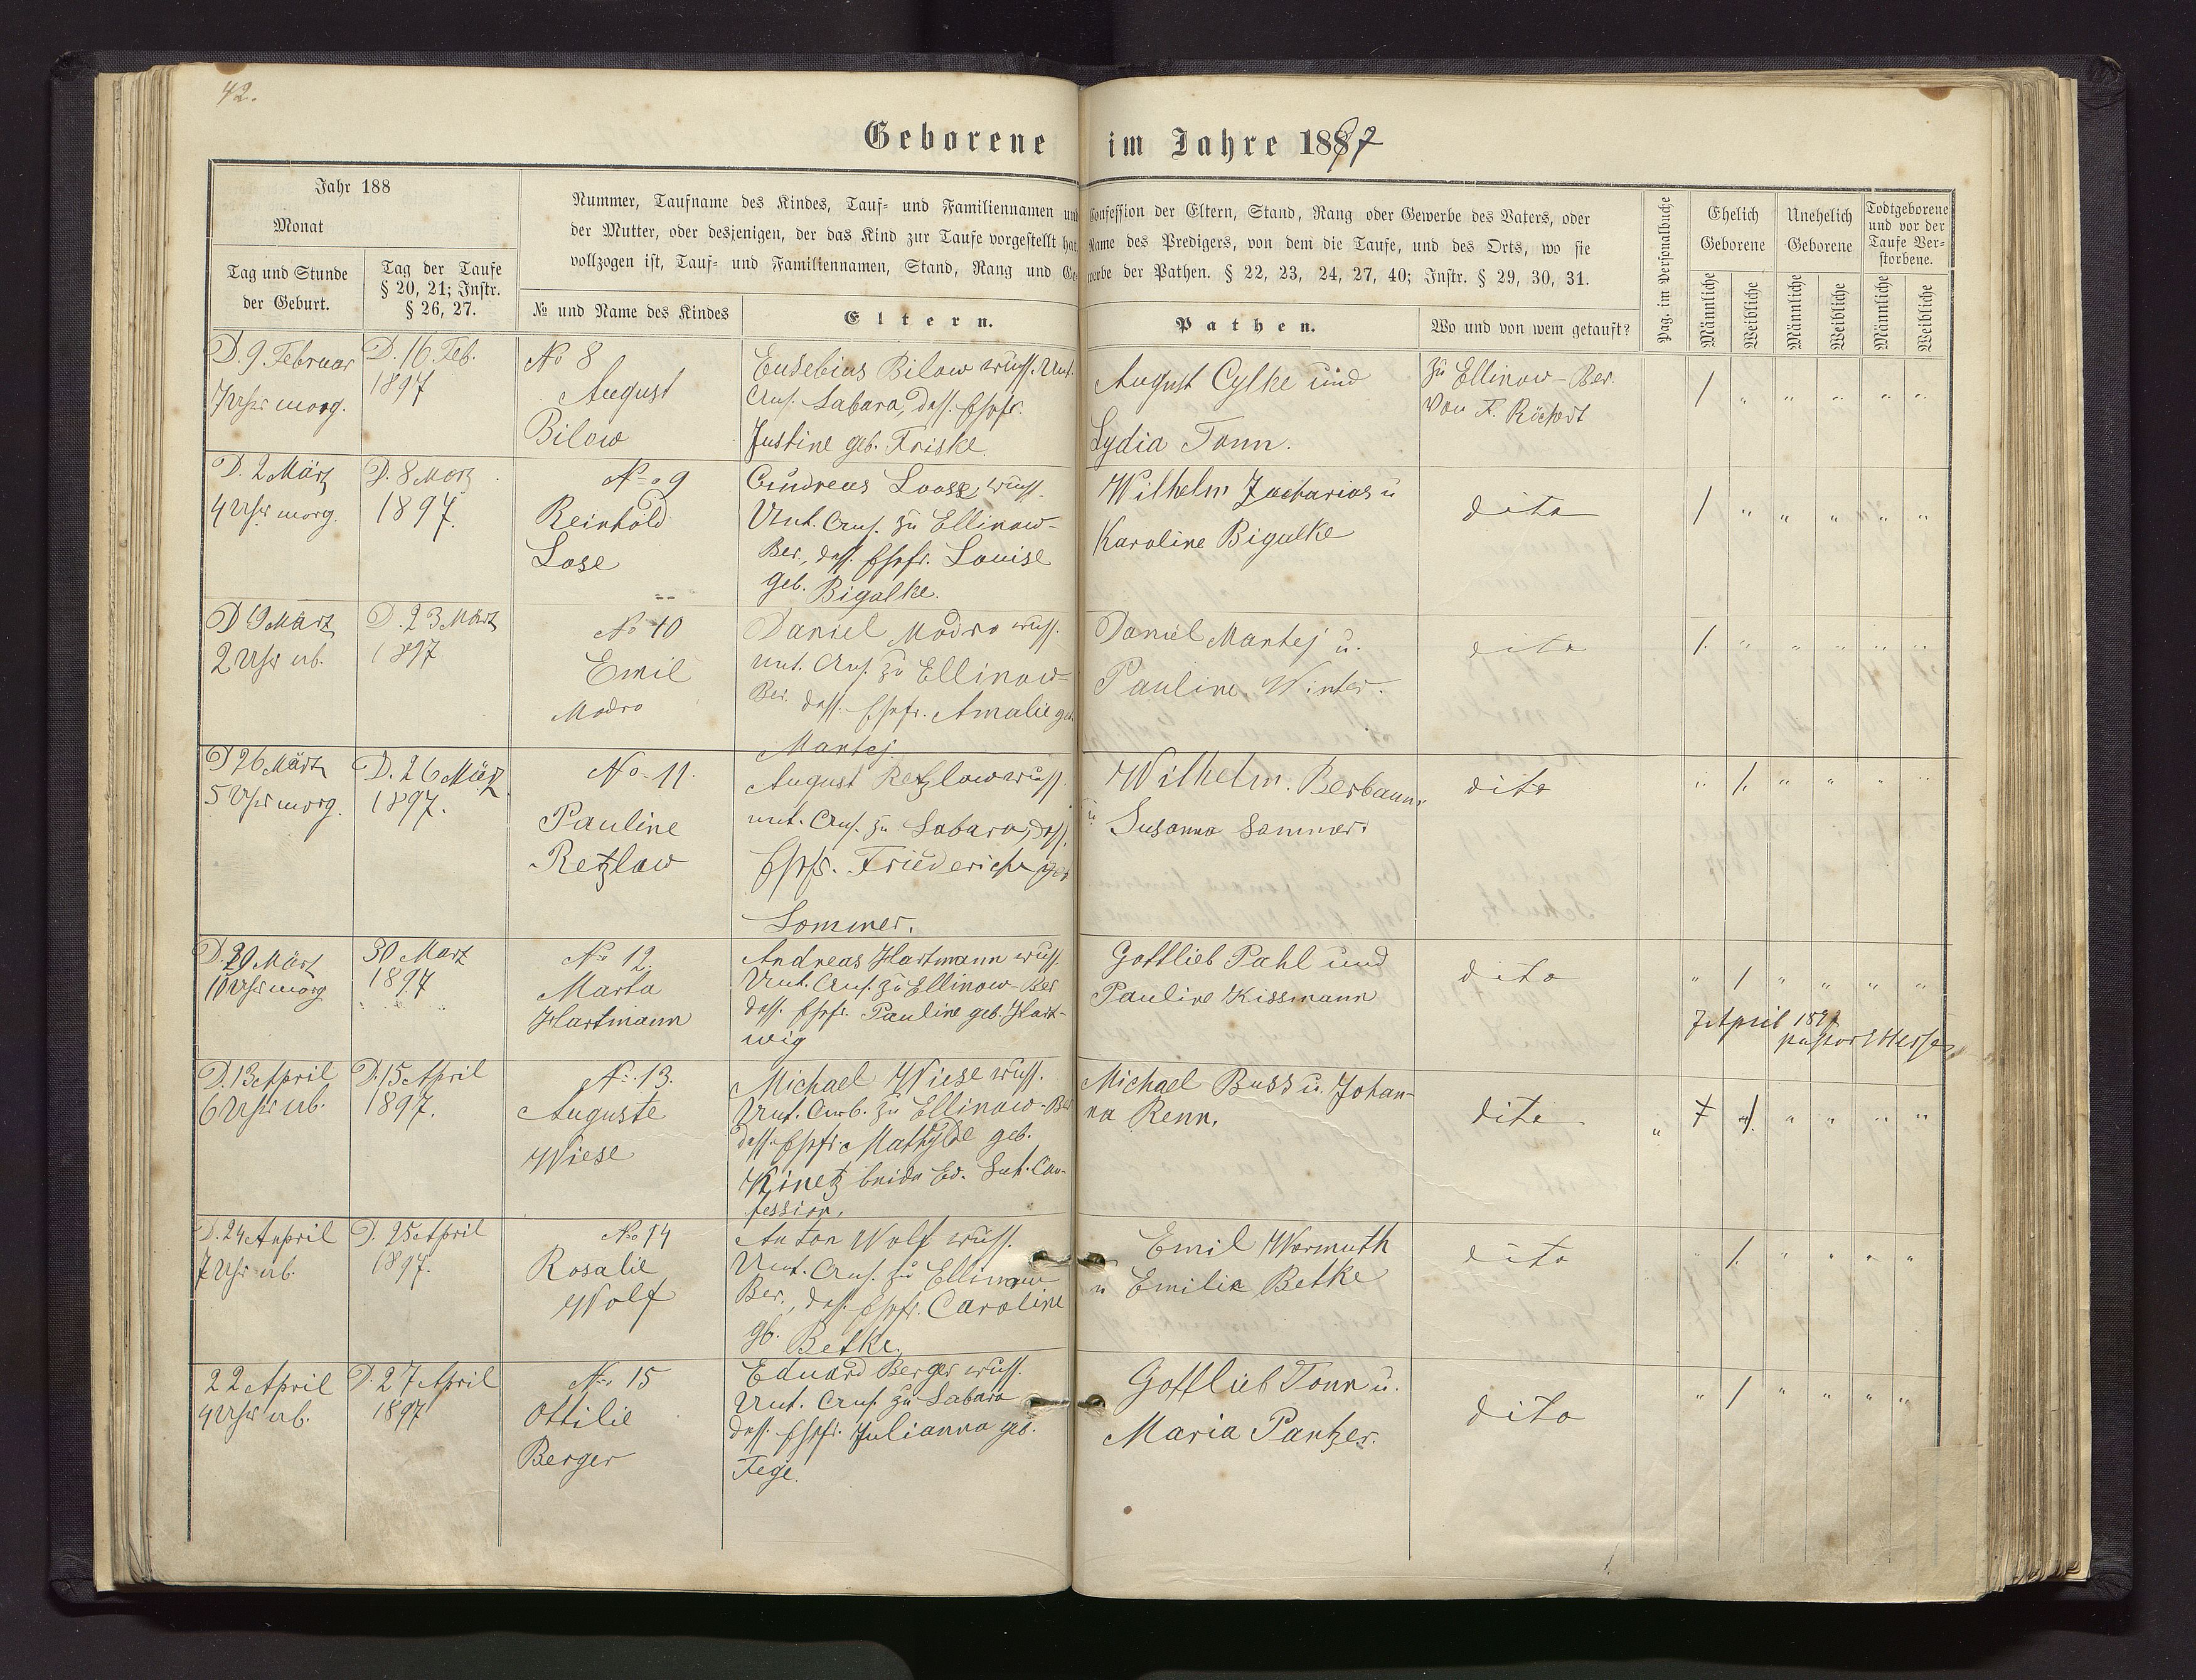 42.
Geborene im Jahre 1897
Jahr 188
Monat
Tag und Stunde
der Geburt.
Tag der Taufe
§ 20, 21; Instr.
§ 26, 27.
Nummer, Taufname des Kindes, Tauf- und Familiennamen und Confession der Eltern, Stand, Rang oder Gewerbe des Vaters, oder
der Mutter, oder desjenigen, der das Kind zur Taufe vorgestellt hat, Name des Predigers, von dem die Taufe, und des Orts, wo sie
vollzogen ist, Tauf- und Familiennamen, Stand, Rang und Gewerbe der Pathen. § 22, 23, 24, 27, 40; Instr. § 29, 30, 31.
№ und Name des Kindes
Eltern.
Pathen.
Wo und von wem getauft?
Pag. im Personalbuche
Ehelich
Geborene
Unehelich
Geborene
Todtgeborene
und vor der
Taufe Ver-
storbene.
Männliche
Weibliche
Männliche
Weibliche
Männliche
Weibliche
D. 9 Februar
7 Uhr morg.
D. 16. Feb.
1897
No 8
August
Bilow
Eusebius Bilow
Labara, Ehfr.
Justine geb. Friske.
August Cylke und
Lydia Tonn.
zu Ellinow-Ber.
von F. Rückert
1 " " " " "
D. 2 März
4 Uhr morg.
D. 8 März
1897.
No 9
Reinhold
Lose
Andreas Loose
Unt. zu Ellinow-
Ber., Ehfr. Louise
geb. Bigalke.
Wilhelm Zacharias u
Karoline Bigalke
dito
1 " " " " "
D 9 März
2 Uhr ab.
D. 23 März
1897
No 10
Emil
Modro
Daniel Modro
unt. zu Ellinow-
Ber. Ehfr. Amalie geb.
Mantej
Daniel Mantej u.
Pauline Winter.
dito
1. " " " " "
D 26 März
5 Uhr morg.
D. 26 März
1897.
No. 11.
Pauline
Retzlow
August Retzlow
unt. zu Labara,
Ehfr. Friederiche geb
Sommer.
Wilhelm Berbaum
u Susanna Sommer.
dito
" 1. " " " "
D. 29 März
10 Uhr morg
30 März
1897
No 12
Marta
Hartmann
Andreas Hartmann
Unt. zu Ellinow-Ber
Ehfr. Pauline geb. Hart-
wig
Gottlieb Pahl und
Pauline Kissmann
dito
" 1 " " " "
7 April 1897
pastor
D. 13 April
6 Uhr ab.
D. 15 April
1897.
No. 13.
Auguste
Wiese
Michael Wiese
Unt. zu Ellinow-Ber
Ehfr. Mathylde geb.
Kinetz beide Ev. Lut. Con-
fession.
Michael Buss u. Johan-
na Renn.
dito
" 1. " " " "
D. 24 April
7 Uhr ab.
D. 25 April
1897.
No 14
Rosalie
Wolf
Anton Wolf
Unt. zu Ellinow
Ber., Ehfr. Caroline
gb. Betke.
Emil Wermuth
u Emilie Betke
dito
" 1. " " " "
22 April
4 Uhr ab.
D. 27 April
1897
No 15
Ottilie
Berger
Eduard Berger
Unt. zu Labara
Ehfr. Julianna geb.
Fege.
Gottlieb Tonn u.
Maria Pantzer.
dito
" 1 " " " "